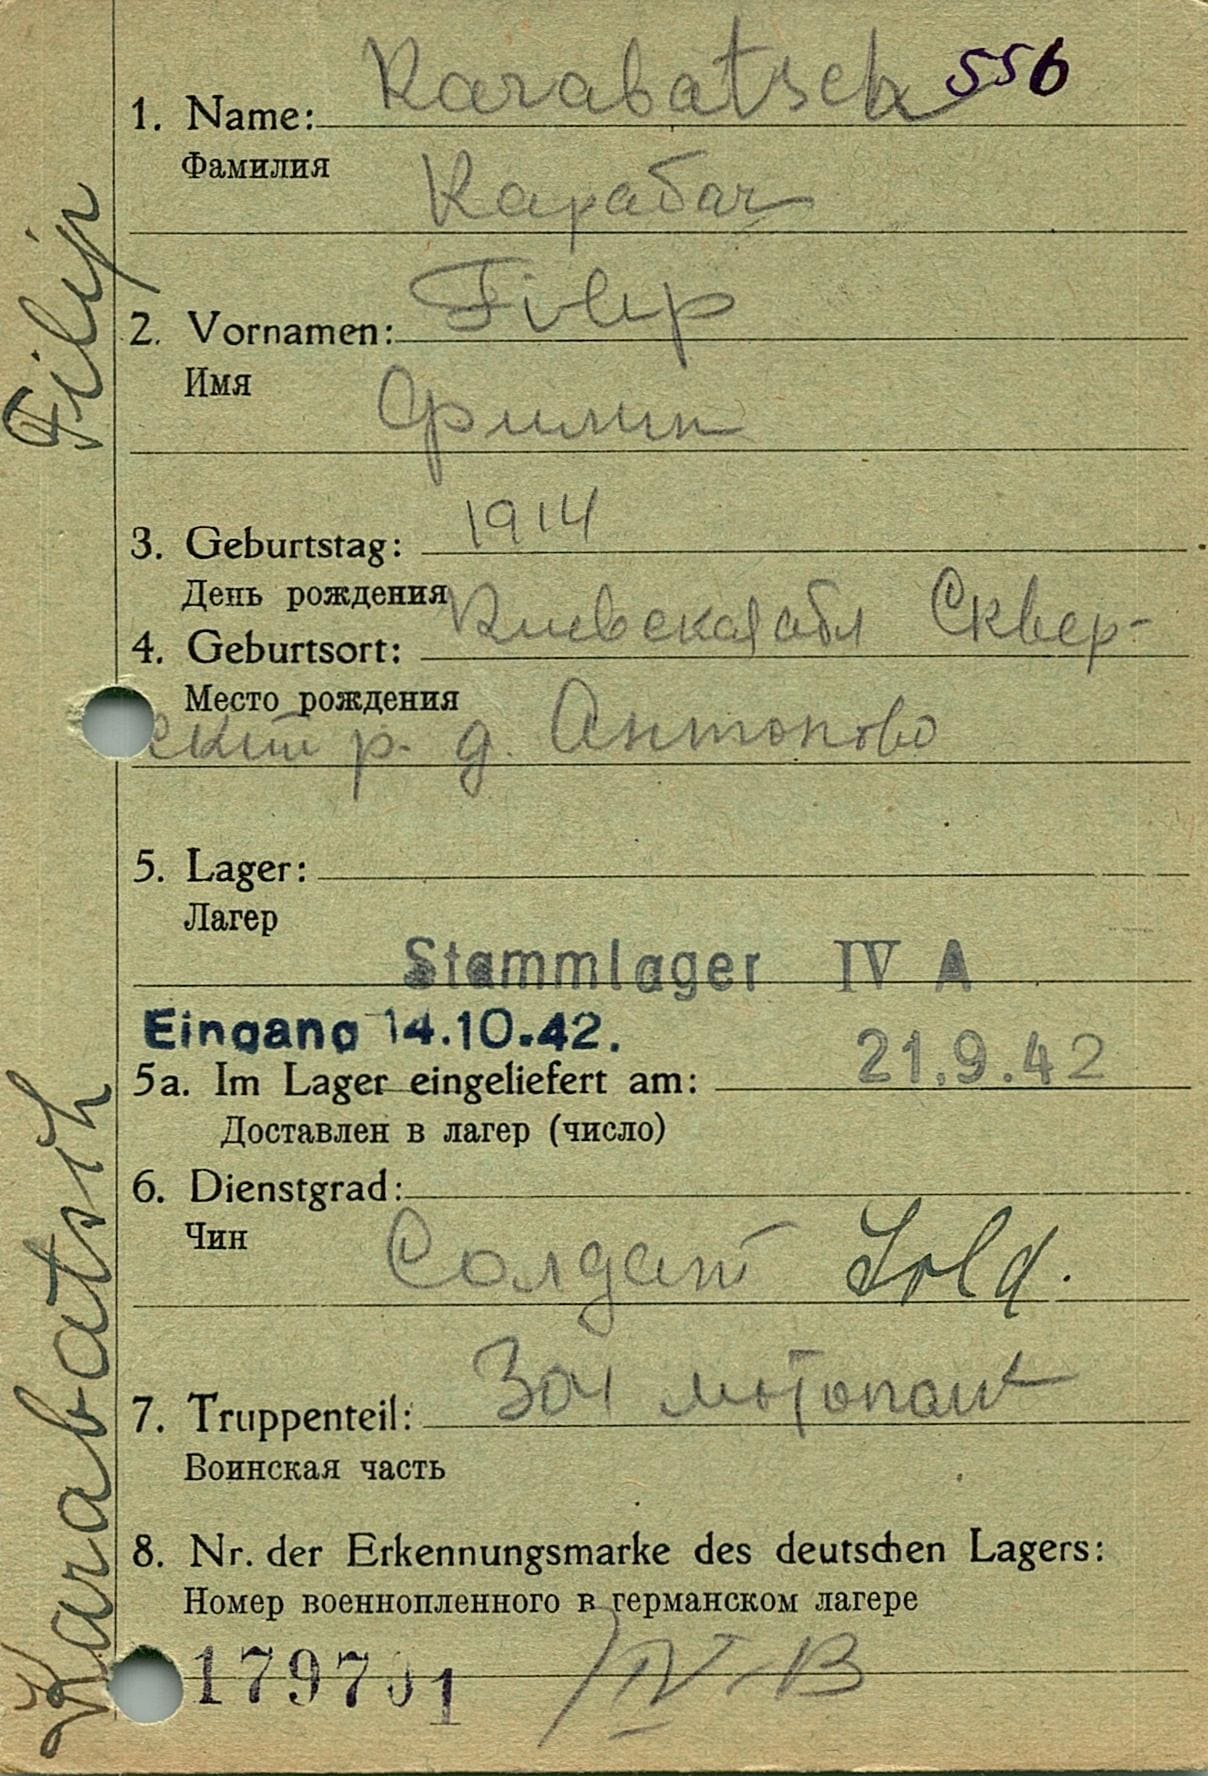 Karabatsch 556
1. Name:
Фамилия
Карабач
Filip
2. Vornamen:
Имя
Филип
1914
3. Geburtstag:
День рождения
Киевская обл Сквер-
4. Geburtsort:
Место рождения
ский р. д. Антоново
5. Lager:
Лагер
Stammlager IV A
Eingang 14.10.42.
21.9.42
5a. Im Lager eingeliefert am:
Доставлен в лагер (число)
6. Dienstgrad:
Чин
Солдат Sold.
304
7. Truppenteil:
Воинская часть
8. Nr. der Erkennungsmarke des deutschen Lagers:
Номер военнопленного в германском лагере
179701 / IV-B
Karabatsch Filip